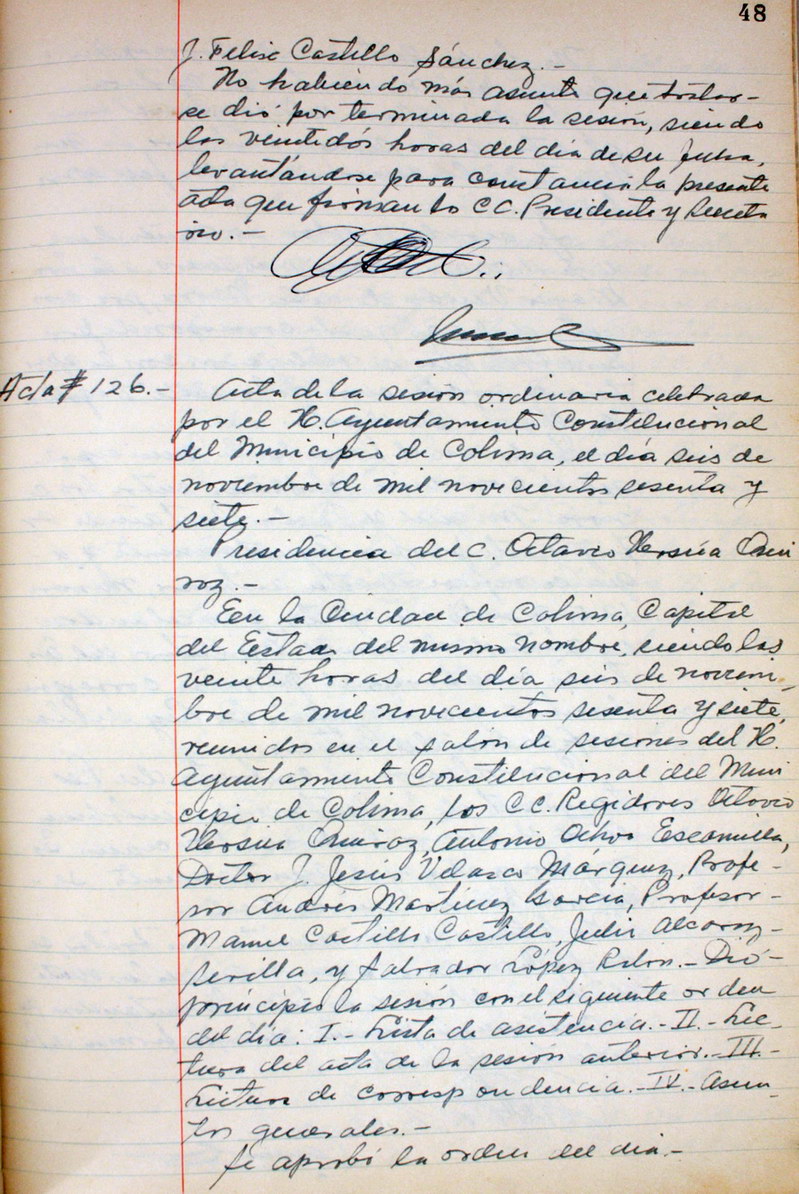 48
J. Felix Castillo Sánchez.-
No habiendo más asunto que tratar-
se dió por terminada la sesión, siendo
las veintidós horas del día de su fecha,
levantándose para constancia la presente
acta que firman lo CC. Presidente y Secreta
rio.-
Acta # 126.- Acta de la sesión ordinaria celebrada
por el H. Ayuntamiento Constitucional
del Municipio de Colima, el día seis de
noviembre de mil novecientos sesenta y
siete.-
Presidencia del C. Otavio
roz.-
Een la Ciudad de Colima, Capital
del Estado del mismo nombre, siendo las
veinte horas del día seis de noviem-
bre de mil novecientos sesenta y siete,
reunidos en el salón de sesiones del H.
Ayuntamiento Constitucional del Muni
cipio de Colima, los CC. Regidores Otavio
Quiroz, Antonio Ochoa Escamilla,
Doctor J. Jesús Velasco Márquez, Profe-
sor Andrés Martínez García, Profesor-
Manuel Castillo Castillo, Julio Alcaraz-
Sevilla, y Salvador López Rolon.- Dió-
principio la sesión con el siguiente orden
del día: I.- Lista de asistencia.- II.- Lec-
tura del acta de la sesión anterior.- III.-
Lectura de correspondencia.- IV.- Asun-
tos generales.-
Se aprobó la orden del día.-